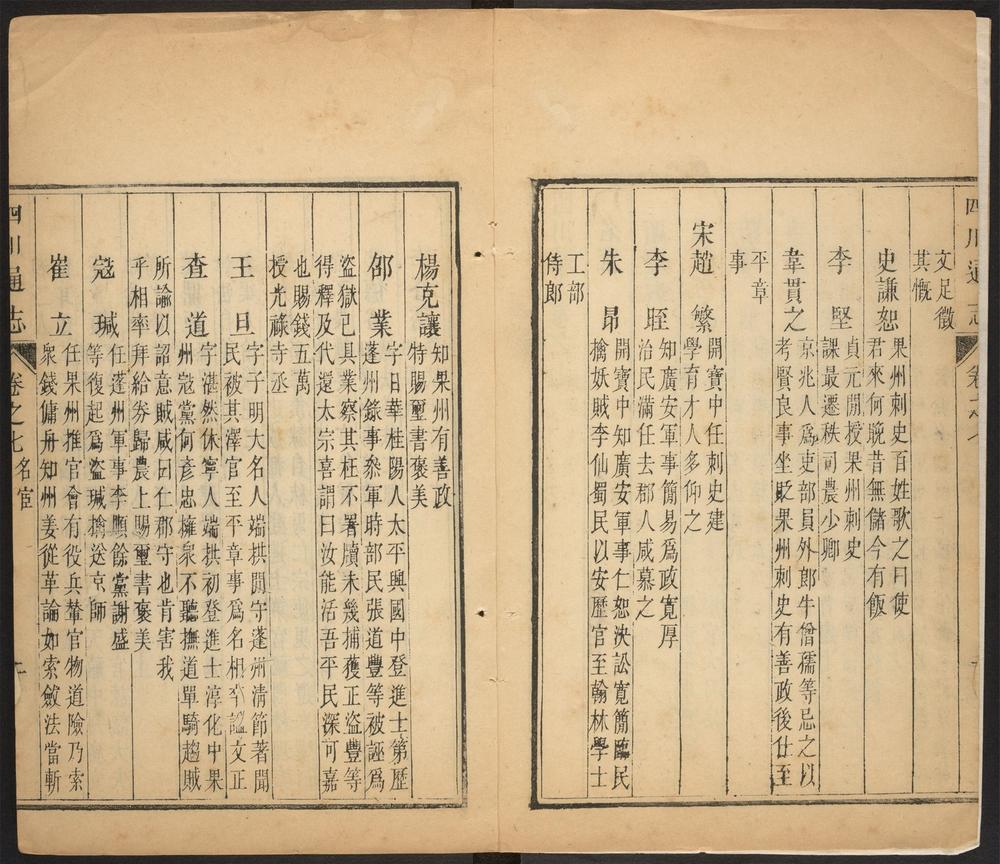 四川通志
卷之七
文足徵
其慨
史謙恕
果州刺史百姓歌之曰使
君來何晚昔無儲今有飯
李堅
貞元間授果州刺史
課最遷秩司農少卿
韋貫之
京兆人爲吏部員外郎牛僧孺等忌之以
考賢良事坐貶果州刺史有善政後仕至
平章
事
宋趙繁
開寶中任刺史建
學育才人多仰之
李晊
知廣安軍事簡易爲政寬厚
治民滿任去郡人咸慕之
朱昂
開寶中知廣安軍事仁恕決訟寬簡臨民
擒妖賊李仙蜀民以安歷官至翰林學士
工部
侍郎
楊克讓
知果州有善政
特賜璽書褒美
邵業
字日華桂陽人太平興國中登進士第歷
蓬州錄事叅軍時部民張道豐等被誣爲
盜獄已具業察其枉不署牘未幾捕獲正盜豐等
得釋及代還太宗喜謂曰汝能活吾平民深可嘉
也賜錢五萬
授光祿寺丞
王旦
字子明大名人端拱間守蓬州清節著聞
民被其澤官至平章事爲名相卒諡文正
查道
字湛然休寧人端拱初登進士淳化中果
州寇黨何彥忠擁衆不聽撫道單騎趨賊
所諭以詔意賊咸曰仁郡守也肯害我
乎相率拜給劵歸農上賜璽書褒美
寇瑊
任蓬州軍事李順餘黨謝盛
等復起爲盜瑊擒送京師
崔立
任果州推官會有役兵輦官物道險乃索
衆錢傭舟知州姜從革論如索斂法當斬
四川通志
卷之七
名宦